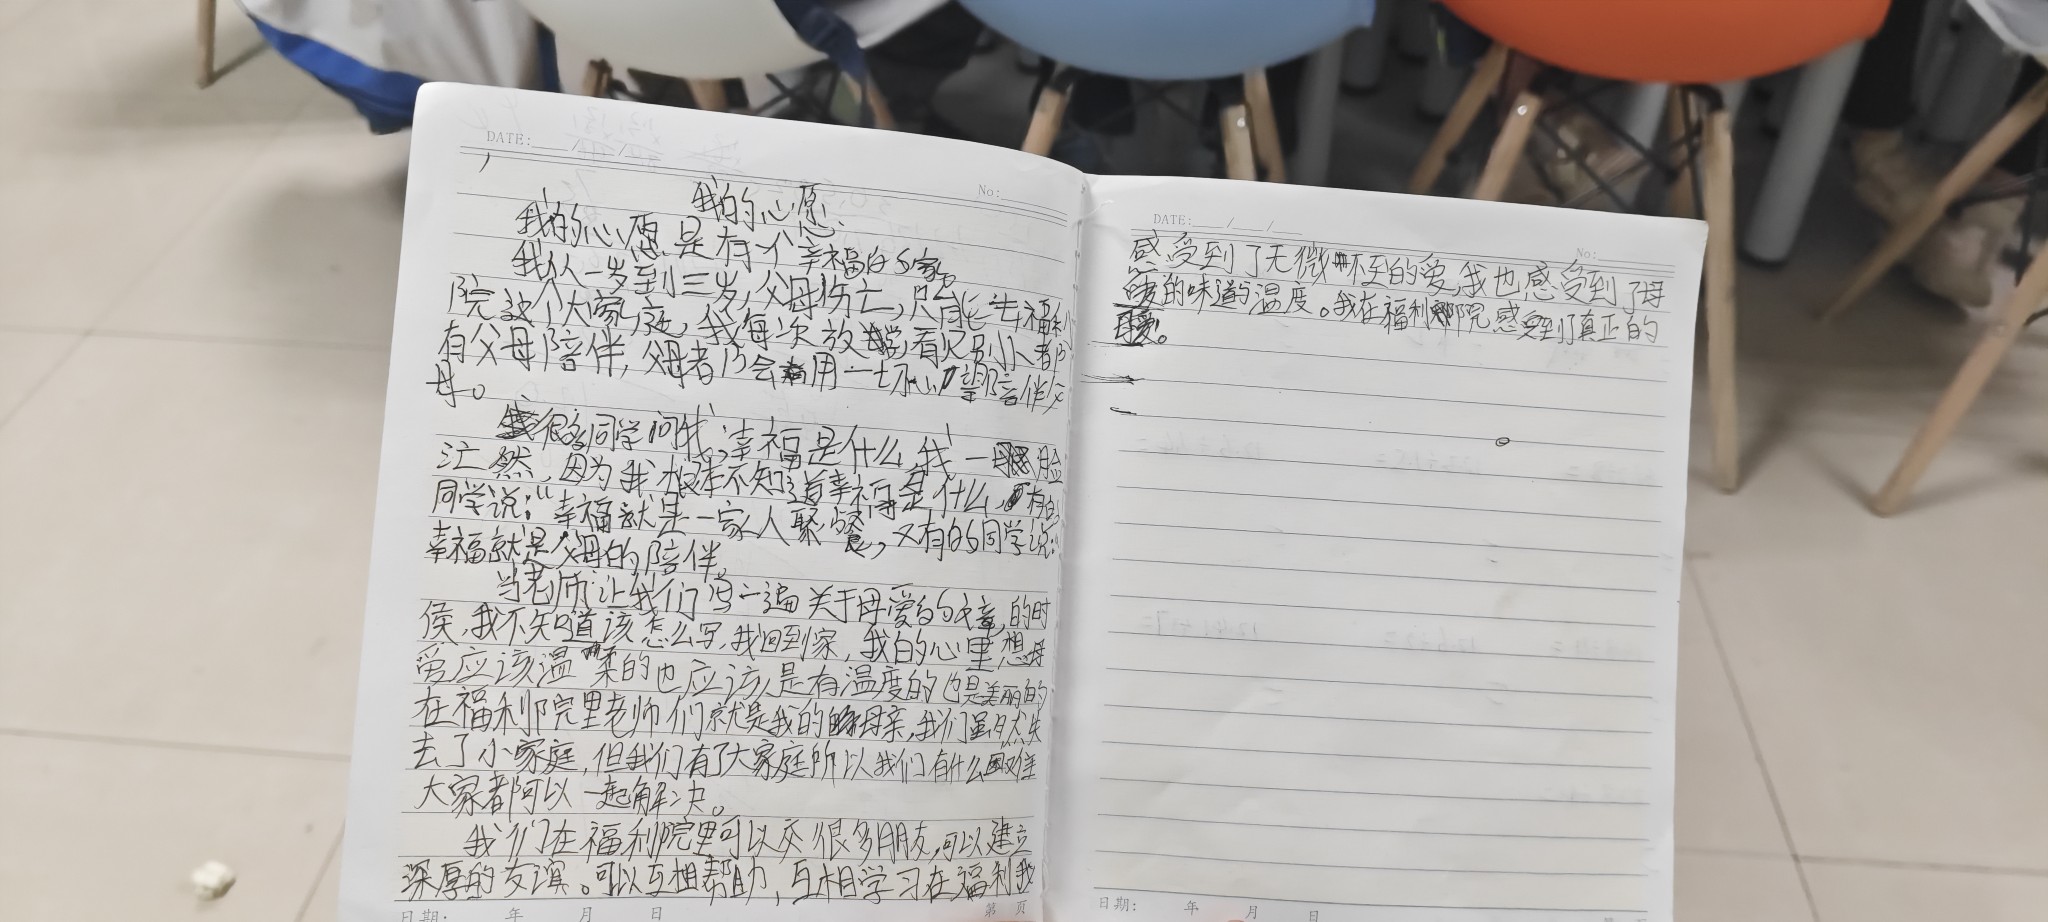 DATE:___/___/___
No:
我的心愿
我的心愿是有个幸福的家。
我从一岁到三岁,父母伤亡,只能去福利
院这个大家庭,我每次放学,看见别小都
有父母陪伴,父母都会用一切心陪伴父
母。
很多同学问我,幸福是什么,我一脸
茫然,因为我根本不知道幸福是什么,有的
同学说:“幸福就是一家人聚餐,又有的同学说:
幸福就是父母的陪伴。
当老师让我们写一遍关于母爱的文章,的时
侯,我不知道该怎么写,我回到家,我的心里想母
爱应该温柔的也应该是有温度的也是美丽的
在福利院里老师们就是我的母亲,我们虽然失
去了小家庭,但我们有了大家庭所以我们有什么困难
大家都可以一起解决。
我们在福利院里可以交很多朋友,可以建立
深厚的友谊。可以互相帮助,互相学习在福利我
日期: 年 月 日
第 页
DATE:___/___/___
No:
感受到了无微不至的爱,我也感受到了母
爱的味道的温度。我在福利院感受到了真正的
母爱。
日期: 年 月 日